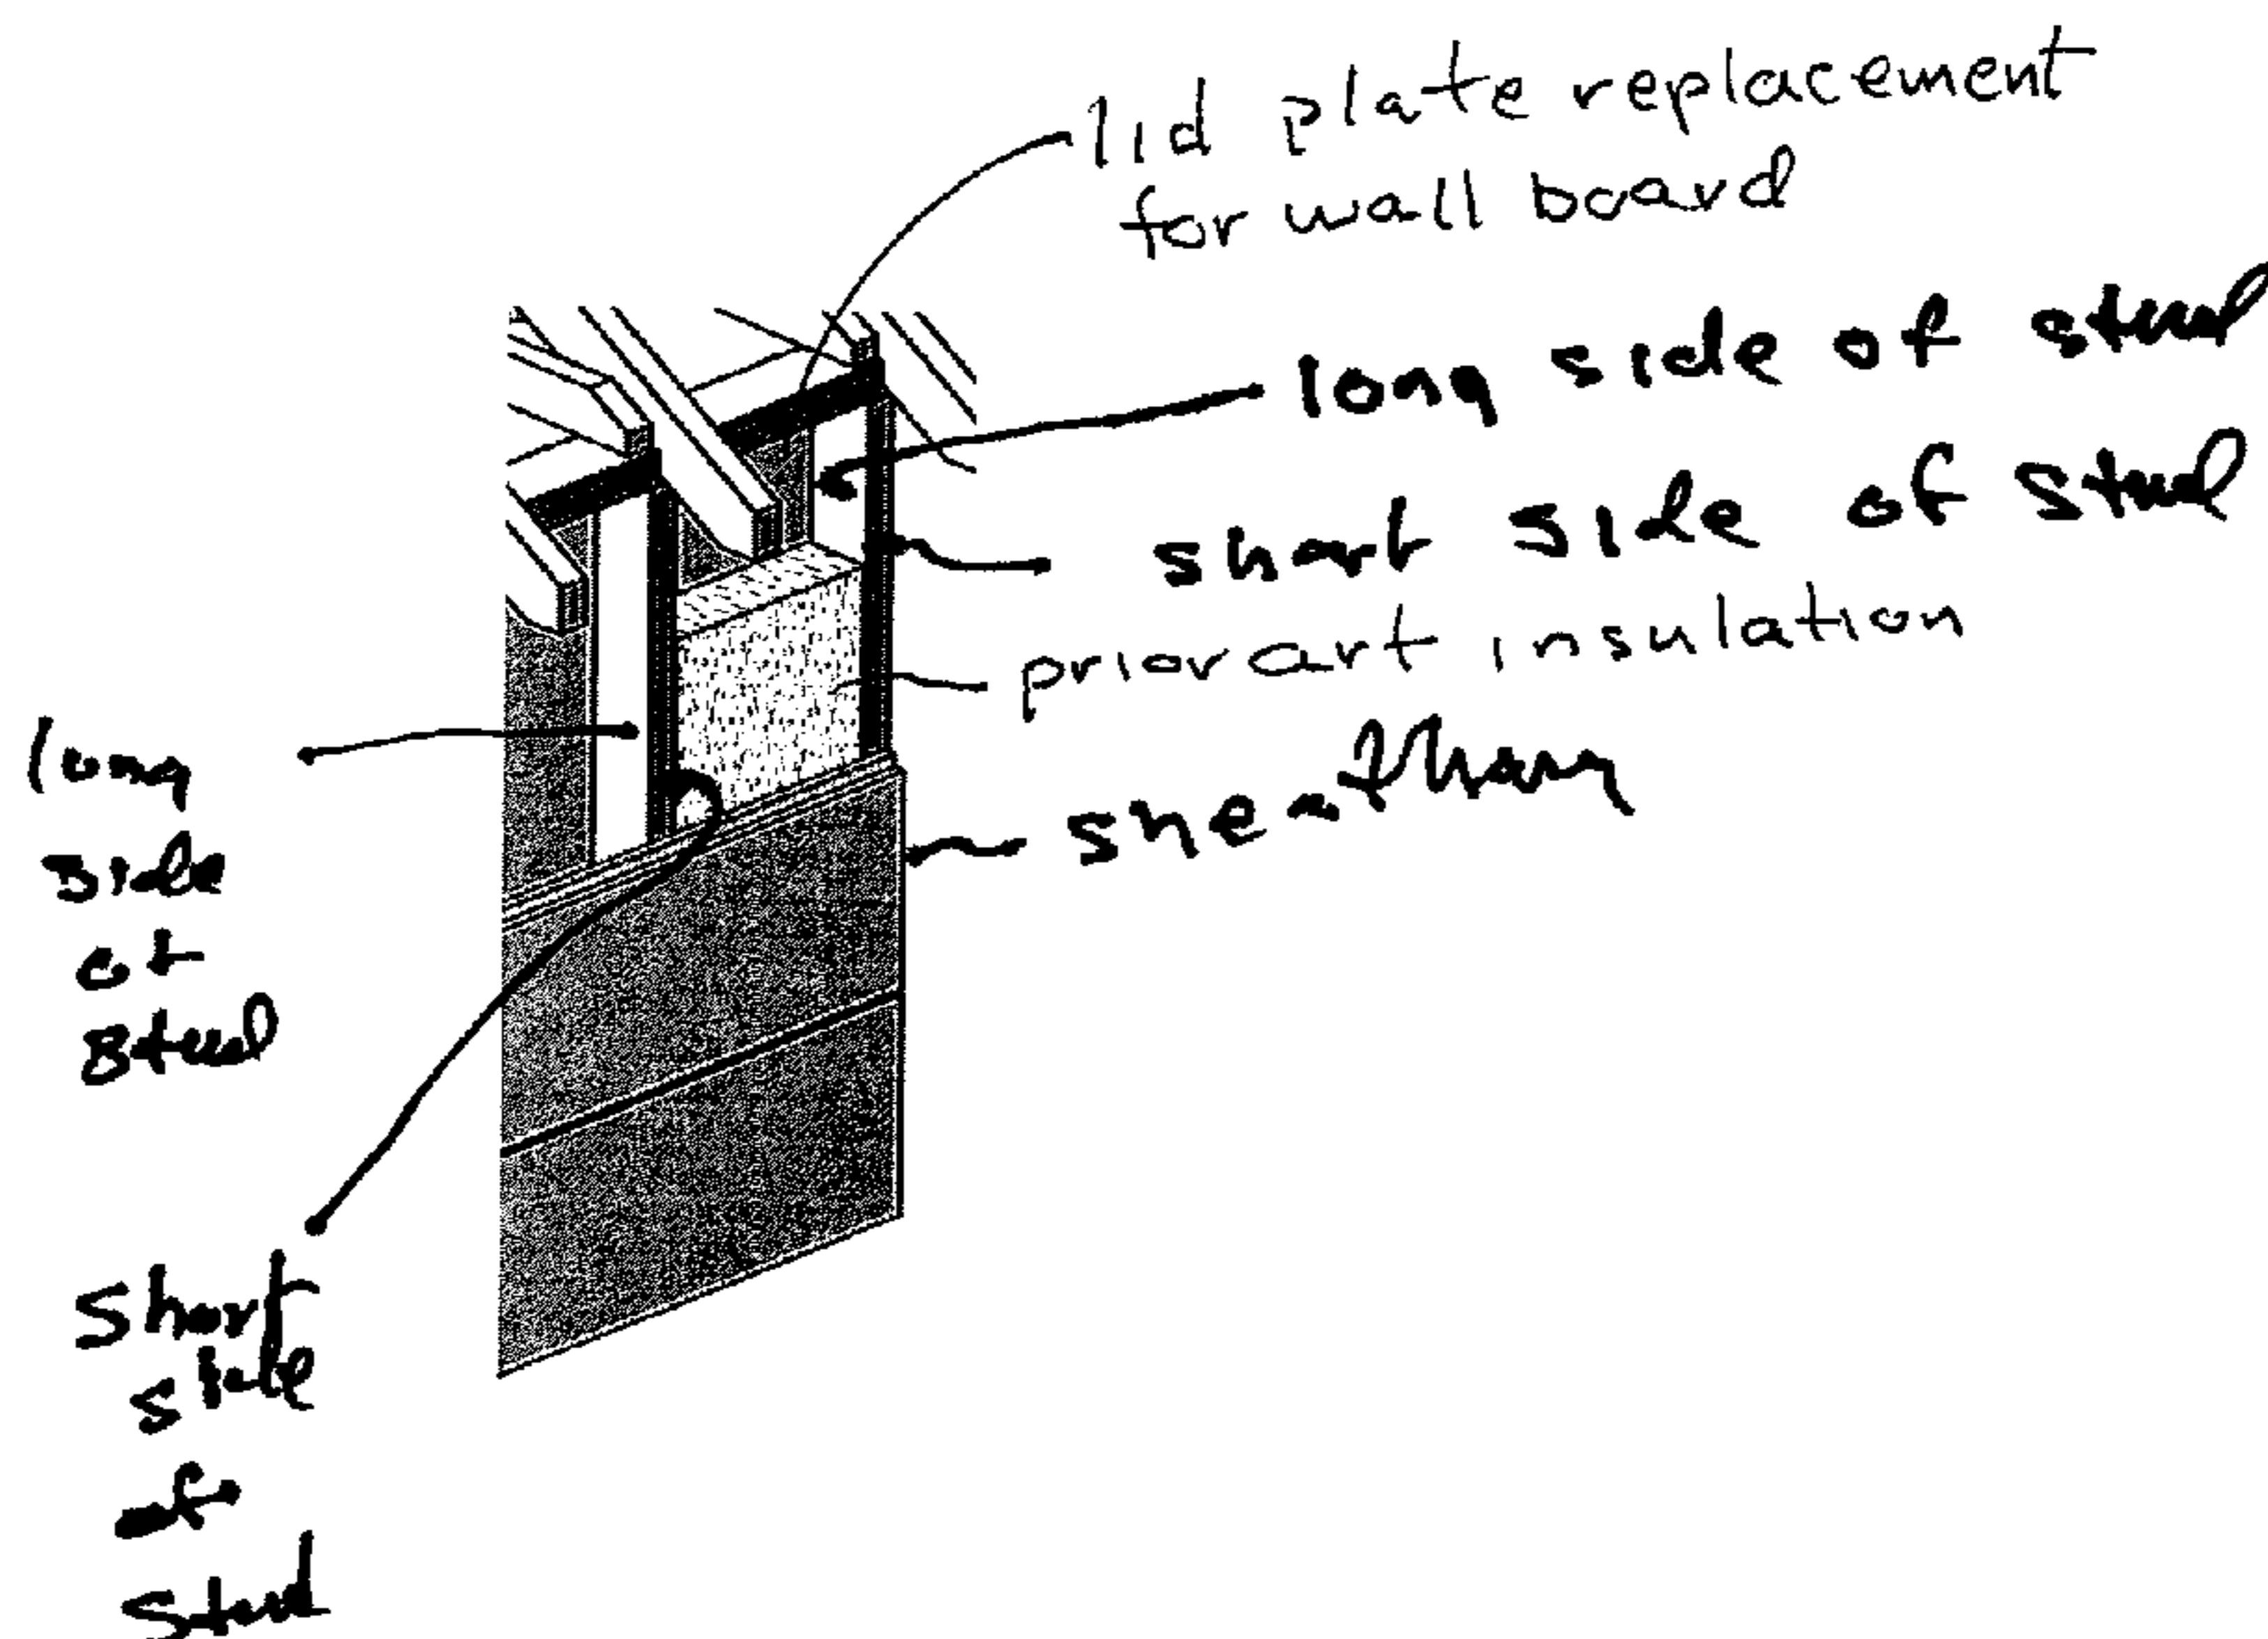 lid plate replacement
for wall board
long side of stud
short side of stud
prior art insulation
sheathing
long
side
of
stud
short
side
of
stud